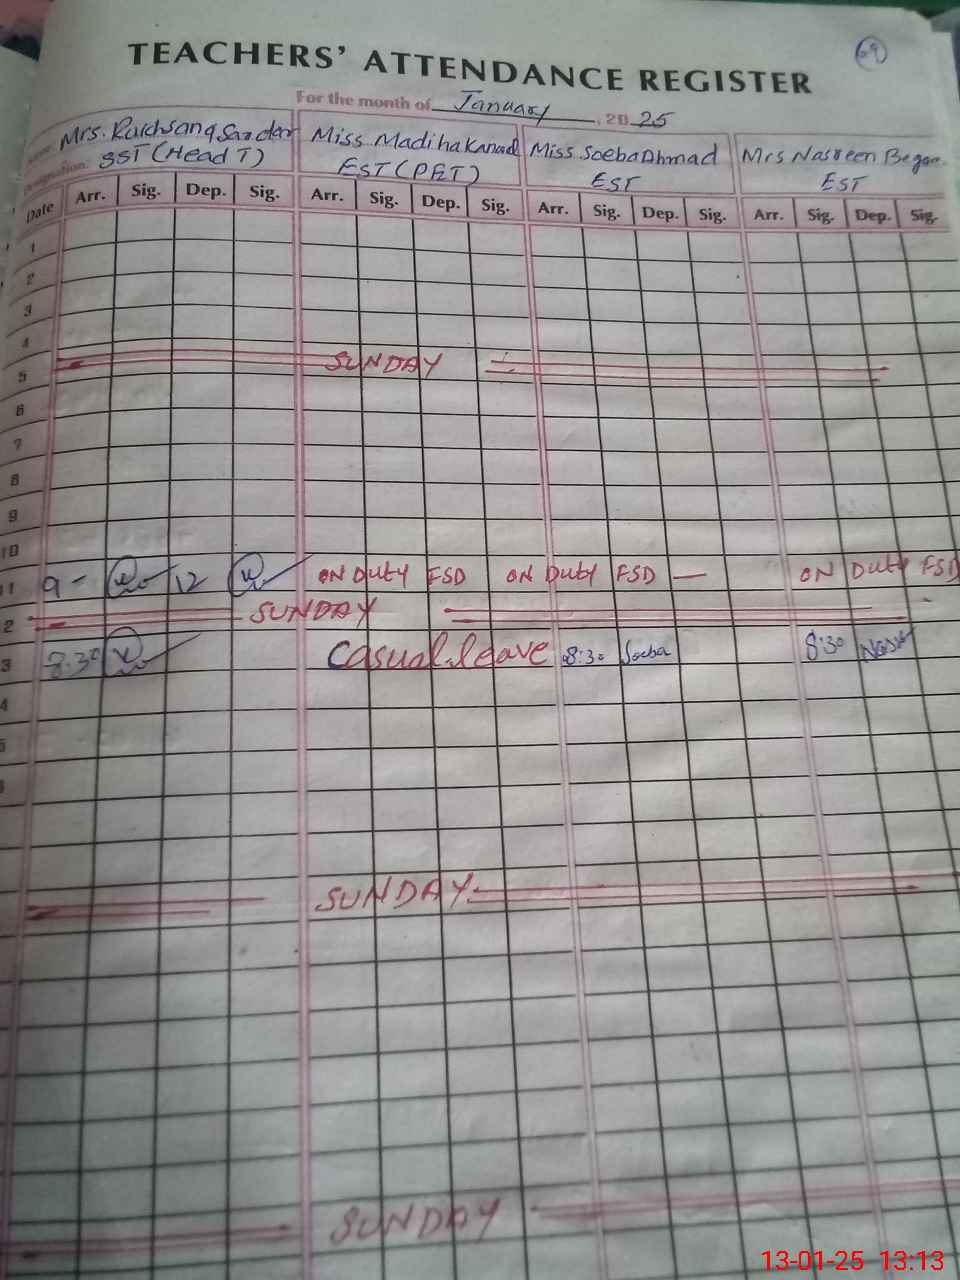 69
TEACHERS' ATTENDANCE REGISTER
For the month of January, 2025
Mrs. Sardar Miss Madiha Kanwal Miss Soeba Ahmad Mrs Nasreen Began
Designation: SST (Head T) EST (PET) EST EST
Date Arr. Sig. Dep. Sig. Arr. Sig. Dep. Sig. Arr. Sig. Dep. Sig. Arr. Sig. Dep. Sig.
1
2
3
4
5 SUNDAY
6
7
8
9
10
11 9 - 12 ON Duty FSD ON Duty FSD — ON Duty FSD
2 SUNDAY
3 8:30 Casual leave 8:30 Soeba 8:30
4
5
SUNDAY
SUNDAY
13-01-25 13:13